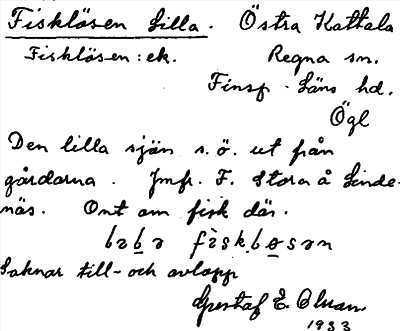 Fisklösen Lilla. Östra Kattala
Fisklösen: ek. Regna sn.
Finsp. Läns hd.
Ögl
Den lilla sjön s.ö. ut från
gårdarna. Jmfr. F. Stora å Linde-
näs. Ont om fisk där.
Saknar till- och avlopp
Gustaf E. 
1933